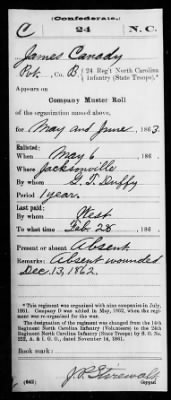 (Confederate.)
C 24 N. C.
James Canady
Pvt., Co. B, 24 Reg't North Carolina
Infantry (State Troops).*
Appears on
Company Muster Roll
of the organization named above,
for May and June, 1863.
Enlisted:
When May 6, 186 .
Where Jacksonville
By whom G. T. Duffy
Period 1 year.
Last paid:
By whom West
To what time Feb 28, 186 .
Present or absent Absent
Remarks: Absent wounded
Dec. 13, 1862.
*This regiment was organized with nine companies in July,
1861. Company D was added in May, 1862, when the regi-
ment was re-organized.
The designation of the regiment was changed from the 14th
Regiment North Carolina Infantry (Volunteers) to the 24th
Regiment North Carolina Infantry (State Troops) by S. O. No.
222, A. & I. G. O., dated November 14, 1861.
Book mark:
(642)
Copyist.